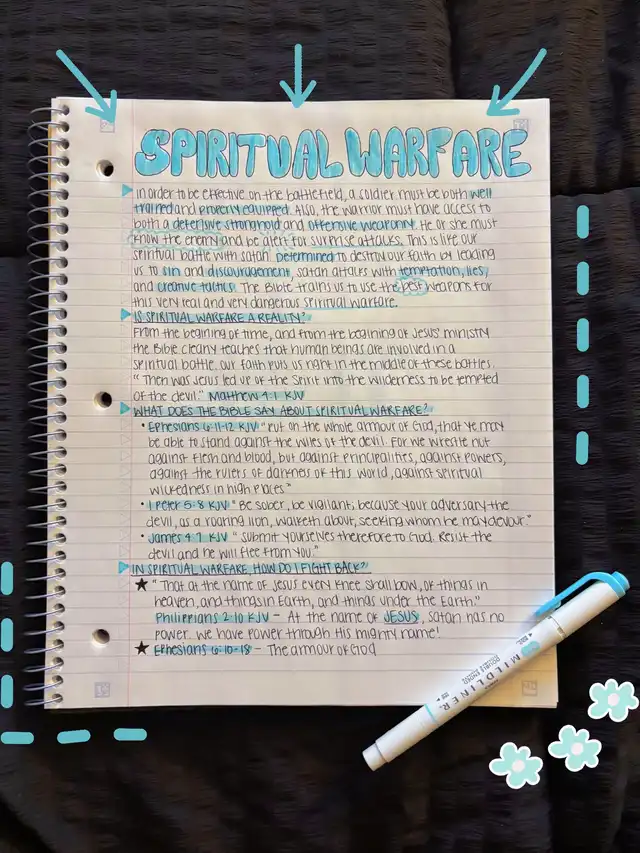 SPIRITUAL WARFARE
in order to be effective on the battlefield, a soldier must be both well
trained and properly equipped. Also, the warrior must have access to
both a defensive stronghold and offensive weaponry. He or she must
know the enemy and be alert for surprise attacks. This is like our
spiritual battle with satan. Determined to destroy our faith by leading
us to sin and discouragement, satan attacks with temptation, lies,
and creative tactics. The Bible trains us to use the best weapons for
this very real and very dangerous spiritual warfare.
IS SPIRITUAL WARFARE A REALITY?
From the begining of time, and from the begining of Jesus' ministry
the Bible clearly teaches that human beings are involved in a
spiritual battle. our faith puts us right in the middle of these battles.
"Then was Jesus led up of the Spirit into the wilderness to be tempted
of the devil." Matthew 4:1 KJV
WHAT DOES THE BIBLE SAY ABOUT SPIRITUAL WARFARE?
• Ephesians 6:11-12 KJV "Put on the whole armour of God, that ye may
be able to stand against the wiles of the devil. For we wrestle not
against flesh and blood, but against principalities, against powers,
against the rulers of darkness of this world, against spiritual
wickedness in high places."
• 1 Peter 5:8 KJV "Be sober, be vigilant; because your adversary the
devil, as a roaring lion, walketh about, seeking whom he may devour."
• James 4:7 KJV "Submit yourselves therefore to God. Resist the
devil and he will flee from you."
IN SPIRITUAL WARFARE, HOW DO I FIGHT BACK?
★ "That at the name of Jesus every knee shall bow, of things in
heaven, and things in Earth, and things under the Earth."
Philippians 2:10 KJV - At the name of JESUS, satan has no
power. we have power through His mighty name!
★ Ephesians 6:10-18 - The armour of God
MILDLINER
DOUBLE ENDED